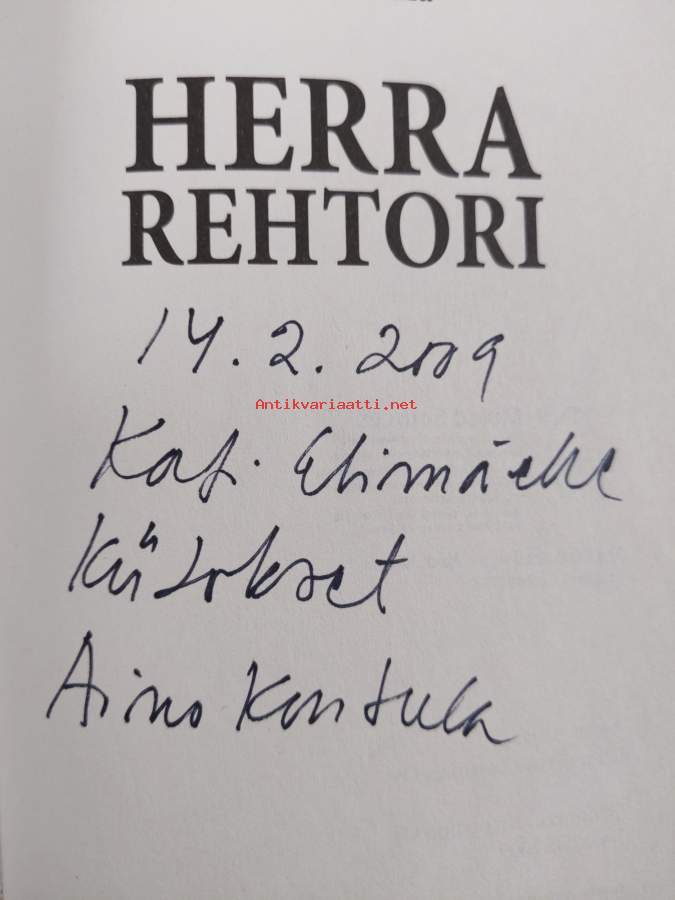 HERRA
REHTORI
14.2.2009
Antikvariaatti.net
Kaf. Elimäelle
Kiitokset
Aino Kontula